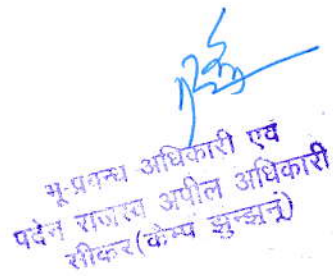 भू-प्रबन्ध अधिकारी एवं
पदेन राजस्व अपील अधिकारी
सीकर(केम्प झुन्झुनूं)